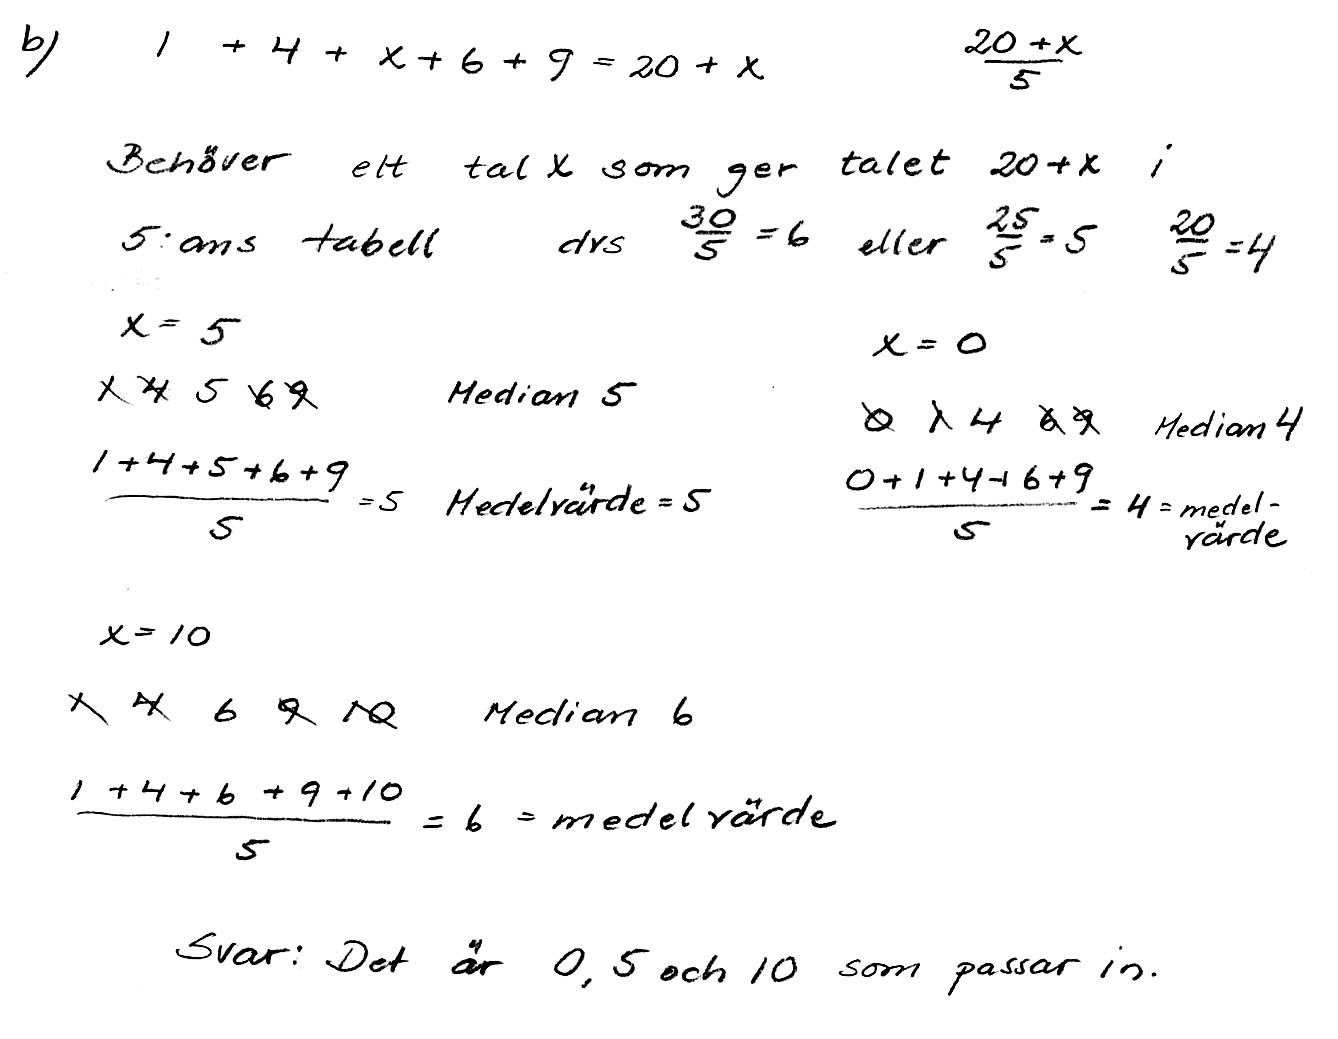 b) 1 + 4 + x + 6 + 9 = 20 + x 20 + x / 5
Behöver ett tal X som ger talet 20 + x i
5:ans tabell dvs 30/5 = 6 eller 25/5 = 5 20/5 = 4
x = 5
1 4 5 6 9 Median 5
(1 + 4 + 5 + 6 + 9)/5 = 5 Medelvärde = 5
x = 0
0 1 4 6 9 Median 4
(0 + 1 + 4 + 6 + 9)/5 = 4 = medel-
värde
x = 10
1 4 6 9 10 Median 6
(1 + 4 + 6 + 9 + 10)/5 = 6 = medelvärde
Svar: Det är 0, 5 och 10 som passar in.